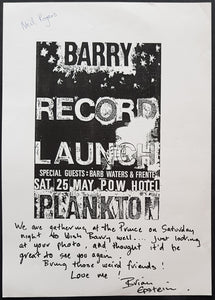 Neil Rogers
BARRY
RECORD
LAUNCH
SPECIAL GUESTS: BARB WATERS & FRENTE
SAT 25 MAY P.O.W. HOTEL
PLANKTON
We are gathering at the Prince on Saturday
night to Wish Barry well... just looking
at your photo, and thought it'd be
great to see you again
Bring those weird friends!
Love me!
Brian
Epstein.